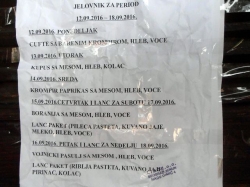 JELOVNIK ZA PERIOD
12.09.2016 – 18.09.2016.
12.09.2016. PONEDELJAK
ĆUFTE SA BARENIM KROMPIROM, HLEB, VOĆE
13.09.2016. UTORAK
KUPUS SA MESOM, HLEB, KOLAČ
14.09.2016. SREDA
KROMPIR PAPRIKAŠ SA MESOM, HLEB, VOĆE
15.09.2016. ČETVRTAK I LANČ ZA SUBOTU 17.09.2016.
BORANIJA SA MESOM, HLEB, VOĆE
LANČ PAKET (PILEĆA PAŠTETA, KUVANO JAJE,
MLEKO, HLEB, VOĆE)
16.09.2016. PETAK I LANČ ZA NEDELJU 18.09.2016.
VOJNIČKI PASULJ SA MESOM, HLEB, VOĆE
LANČ PAKET (RIBLJA PAŠTETA, KUVANO JAJE
PIRINAČ, KOLAČ)